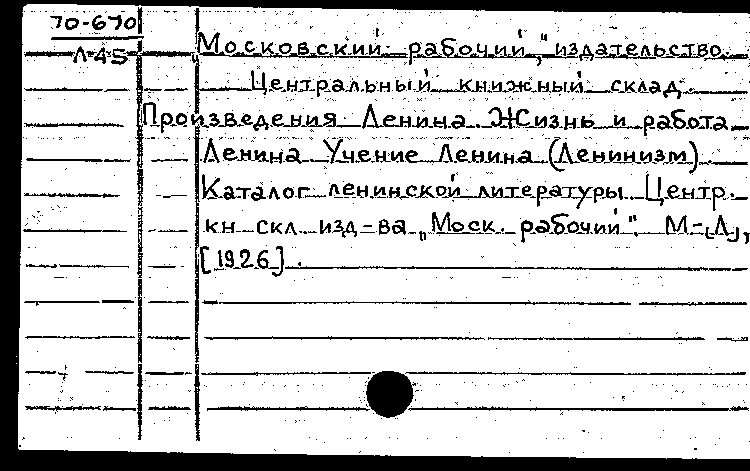 70-670
Л-45
„Московский рабочий," издательство.
Центральный книжный склад.
Произведения Ленина. Жизнь и работа
Ленина Учение Ленина (Ленинизм)
Каталог ленинской литературы Центр.
кн скл. изд-ва „Моск. рабочий". М-[Л],
[1926].